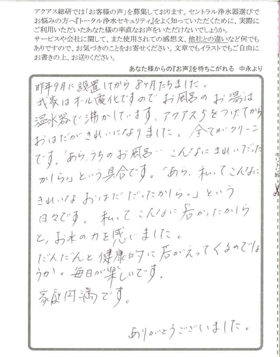 アクアス総研では「お客様の声」を募集しております。セントラル浄水器選びで
お悩みの方へ「トータル浄水セキュリティ」をよく知っていただくために、実際に
ご利用いただいたあなた様の率直なお声をいただけないでしょうか。
サービスや会社に関して、また使用されての感想文、他社との違いなど何でも
ありですので、お気づきのことをお寄せください。文章でもイラストでもご自由に
お書きの上、お送りください。
あなた様からの『お声』を待ちこがれる 中永より
昨年9月に設置してから8ヶ月たちました。
我家はオール電化ですのでお風呂のお湯は
温水器で沸かしています。アクアスをつけてから
おはだがきれいになりました。全てがクリーン
です。あら、うちのお風呂…こんなにきれいだった
かしら。という具合です。「あら、私ってこんなに
きれいなおはだだったかしら。」という
日々です。私ってこんなに若かったかしら
と、お水の力を感じました。
だんだんと健康的に若がえってくるのでしょ
うか。毎日が楽しいです。
家庭円満です。
ありがとうございました。